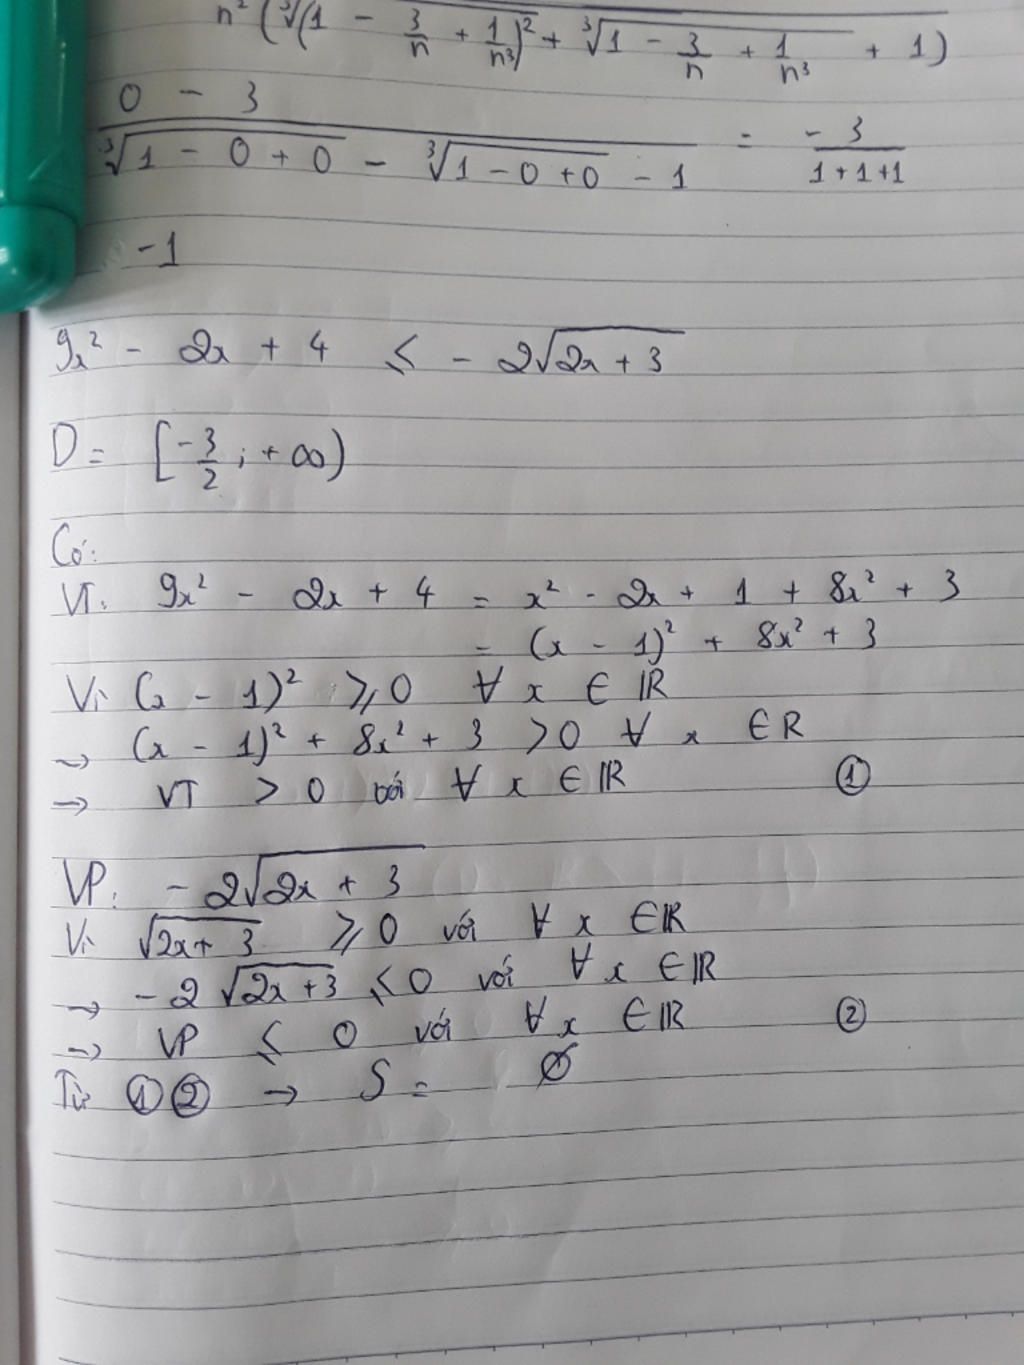 n² (∛(1 - 3/n + 1/n³)² + ∛1 - 3/n + 1/n³ + 1)
0 - 3
∛1 - 0 + 0 - ∛1 - 0 + 0 - 1 = - 3/1 + 1 + 1
-1
9x² - 2x + 4 ≤ - 2√2x + 3
D = [-3/2 ; + ∞)
Có:
VT: 9x² - 2x + 4 = x² - 2x + 1 + 8x² + 3
= (x - 1)² + 8x² + 3
Vì (x - 1)² ⩾ 0 ∀ x ∈ ℝ
→ (x - 1)² + 8x² + 3 > 0 ∀ x ∈ R
→ VT > 0 với ∀ x ∈ ℝ ①
VP: - 2√2x + 3
Vì √2x + 3 ⩾ 0 với ∀ x ∈ ℝ
→ - 2 √2x + 3 ≤ 0 với ∀ x ∈ ℝ
→ VP ≤ 0 với ∀ x ∈ ℝ ②
Từ ① ② → S = ∅